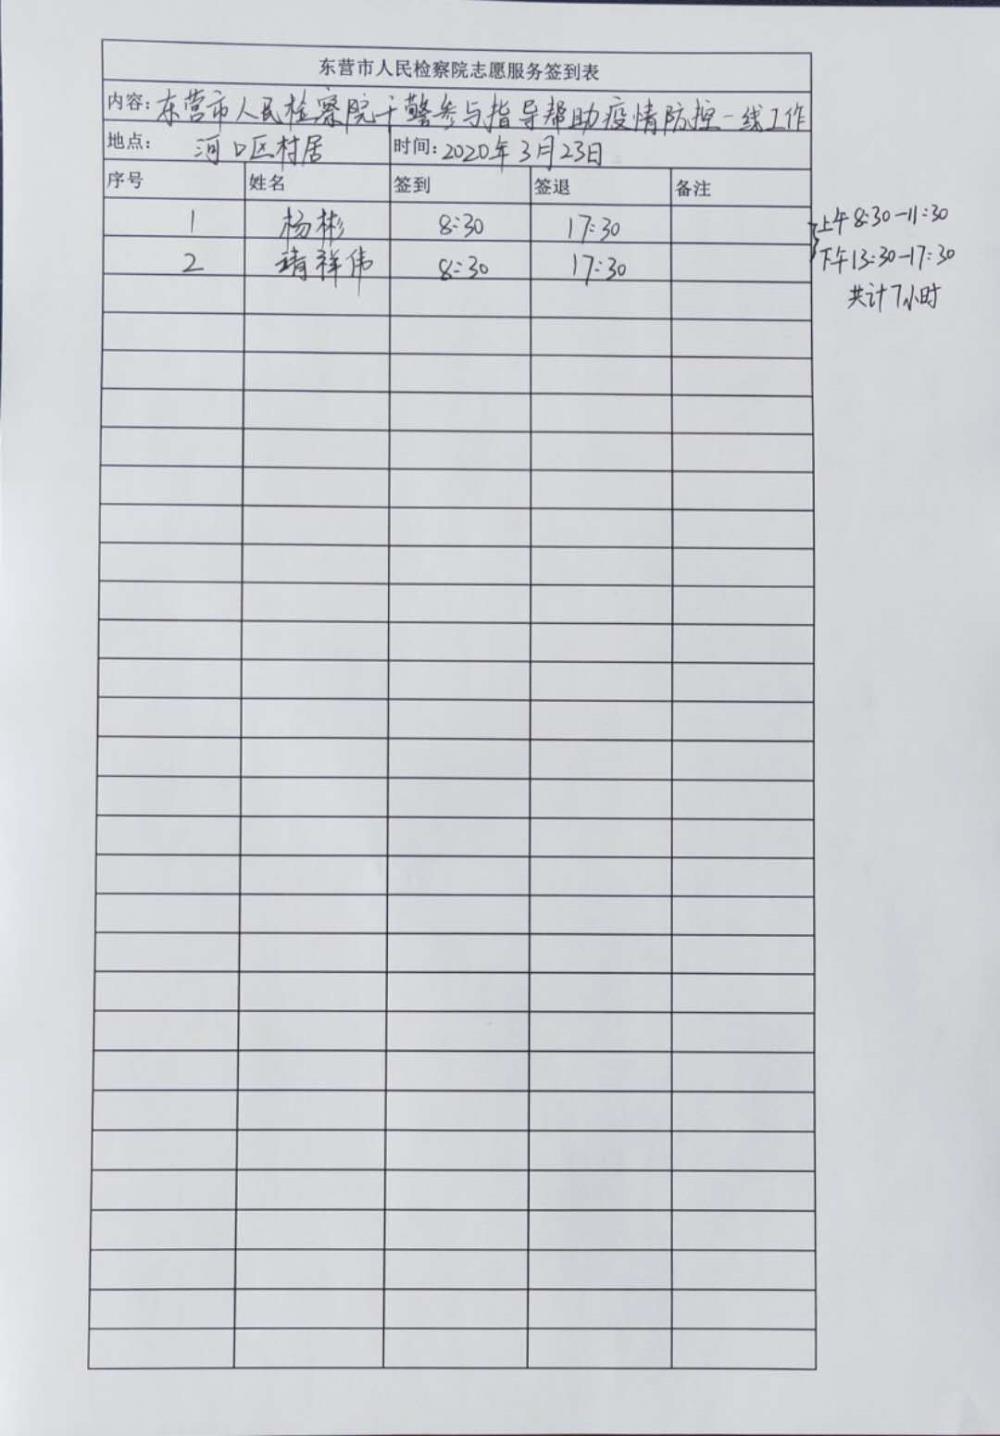 东营市人民检察院志愿服务签到表
内容：东营市人民检察院干警参与指导帮助疫情防控一线工作
地点： 河口区村居 时间：2020年3月23日
序号 姓名 签到 签退 备注
1 杨彬 8:30 17:30
2 靖祥伟 8:30 17:30
上午8:30-11:30
下午13:30-17:30
共计7小时